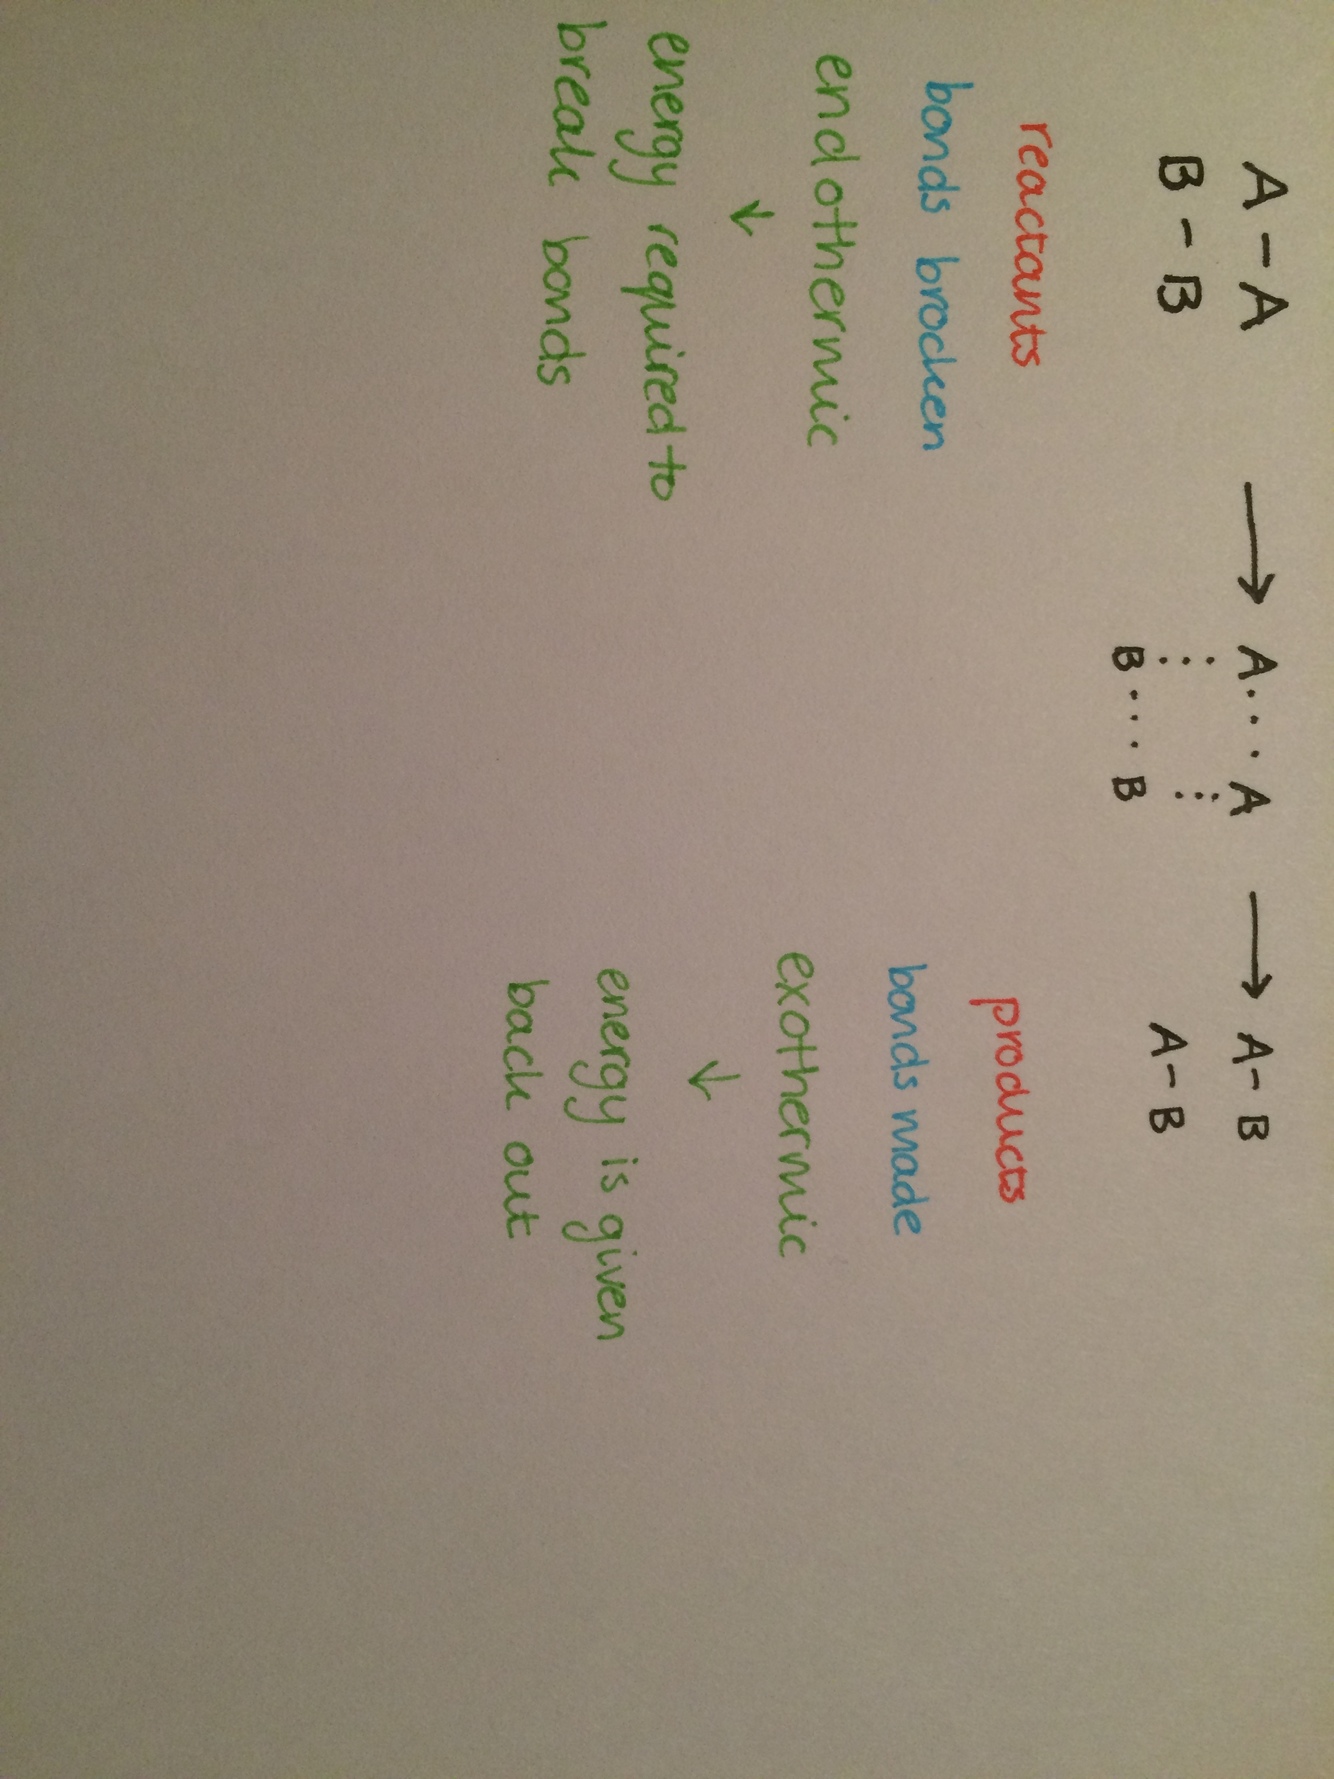 A – A → A . . . A → A – B
B – B B . . . B A – B
reactants
bonds brocken
endothermic
↓
energy required to
break bonds
products
bonds made
exothermic
↓
energy is given
back out